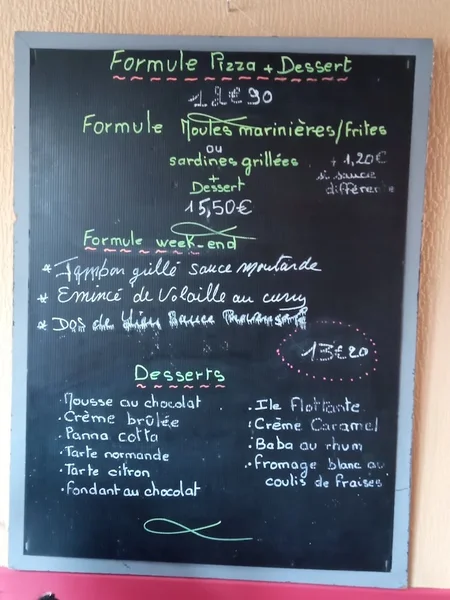 Formule Pizza + Dessert
11€90
Formule Moules marinières/frites
ou
sardines grillées
+ 1,20€
si sauce
différente
+
Dessert
15,50€
Formule week-end
* Jambon grillé sauce moutarde
* Emincé de Volaille au curry
* DOS de Lieu Sauce
13€20
Desserts
. Mousse au chocolat
. Crème brûlée
. Panna cotta
. Tarte normande
. Tarte citron
. fondant au chocolat
. Ile Flottante
. Crème Caramel
. Baba au rhum
. Fromage blanc au
coulis de fraises